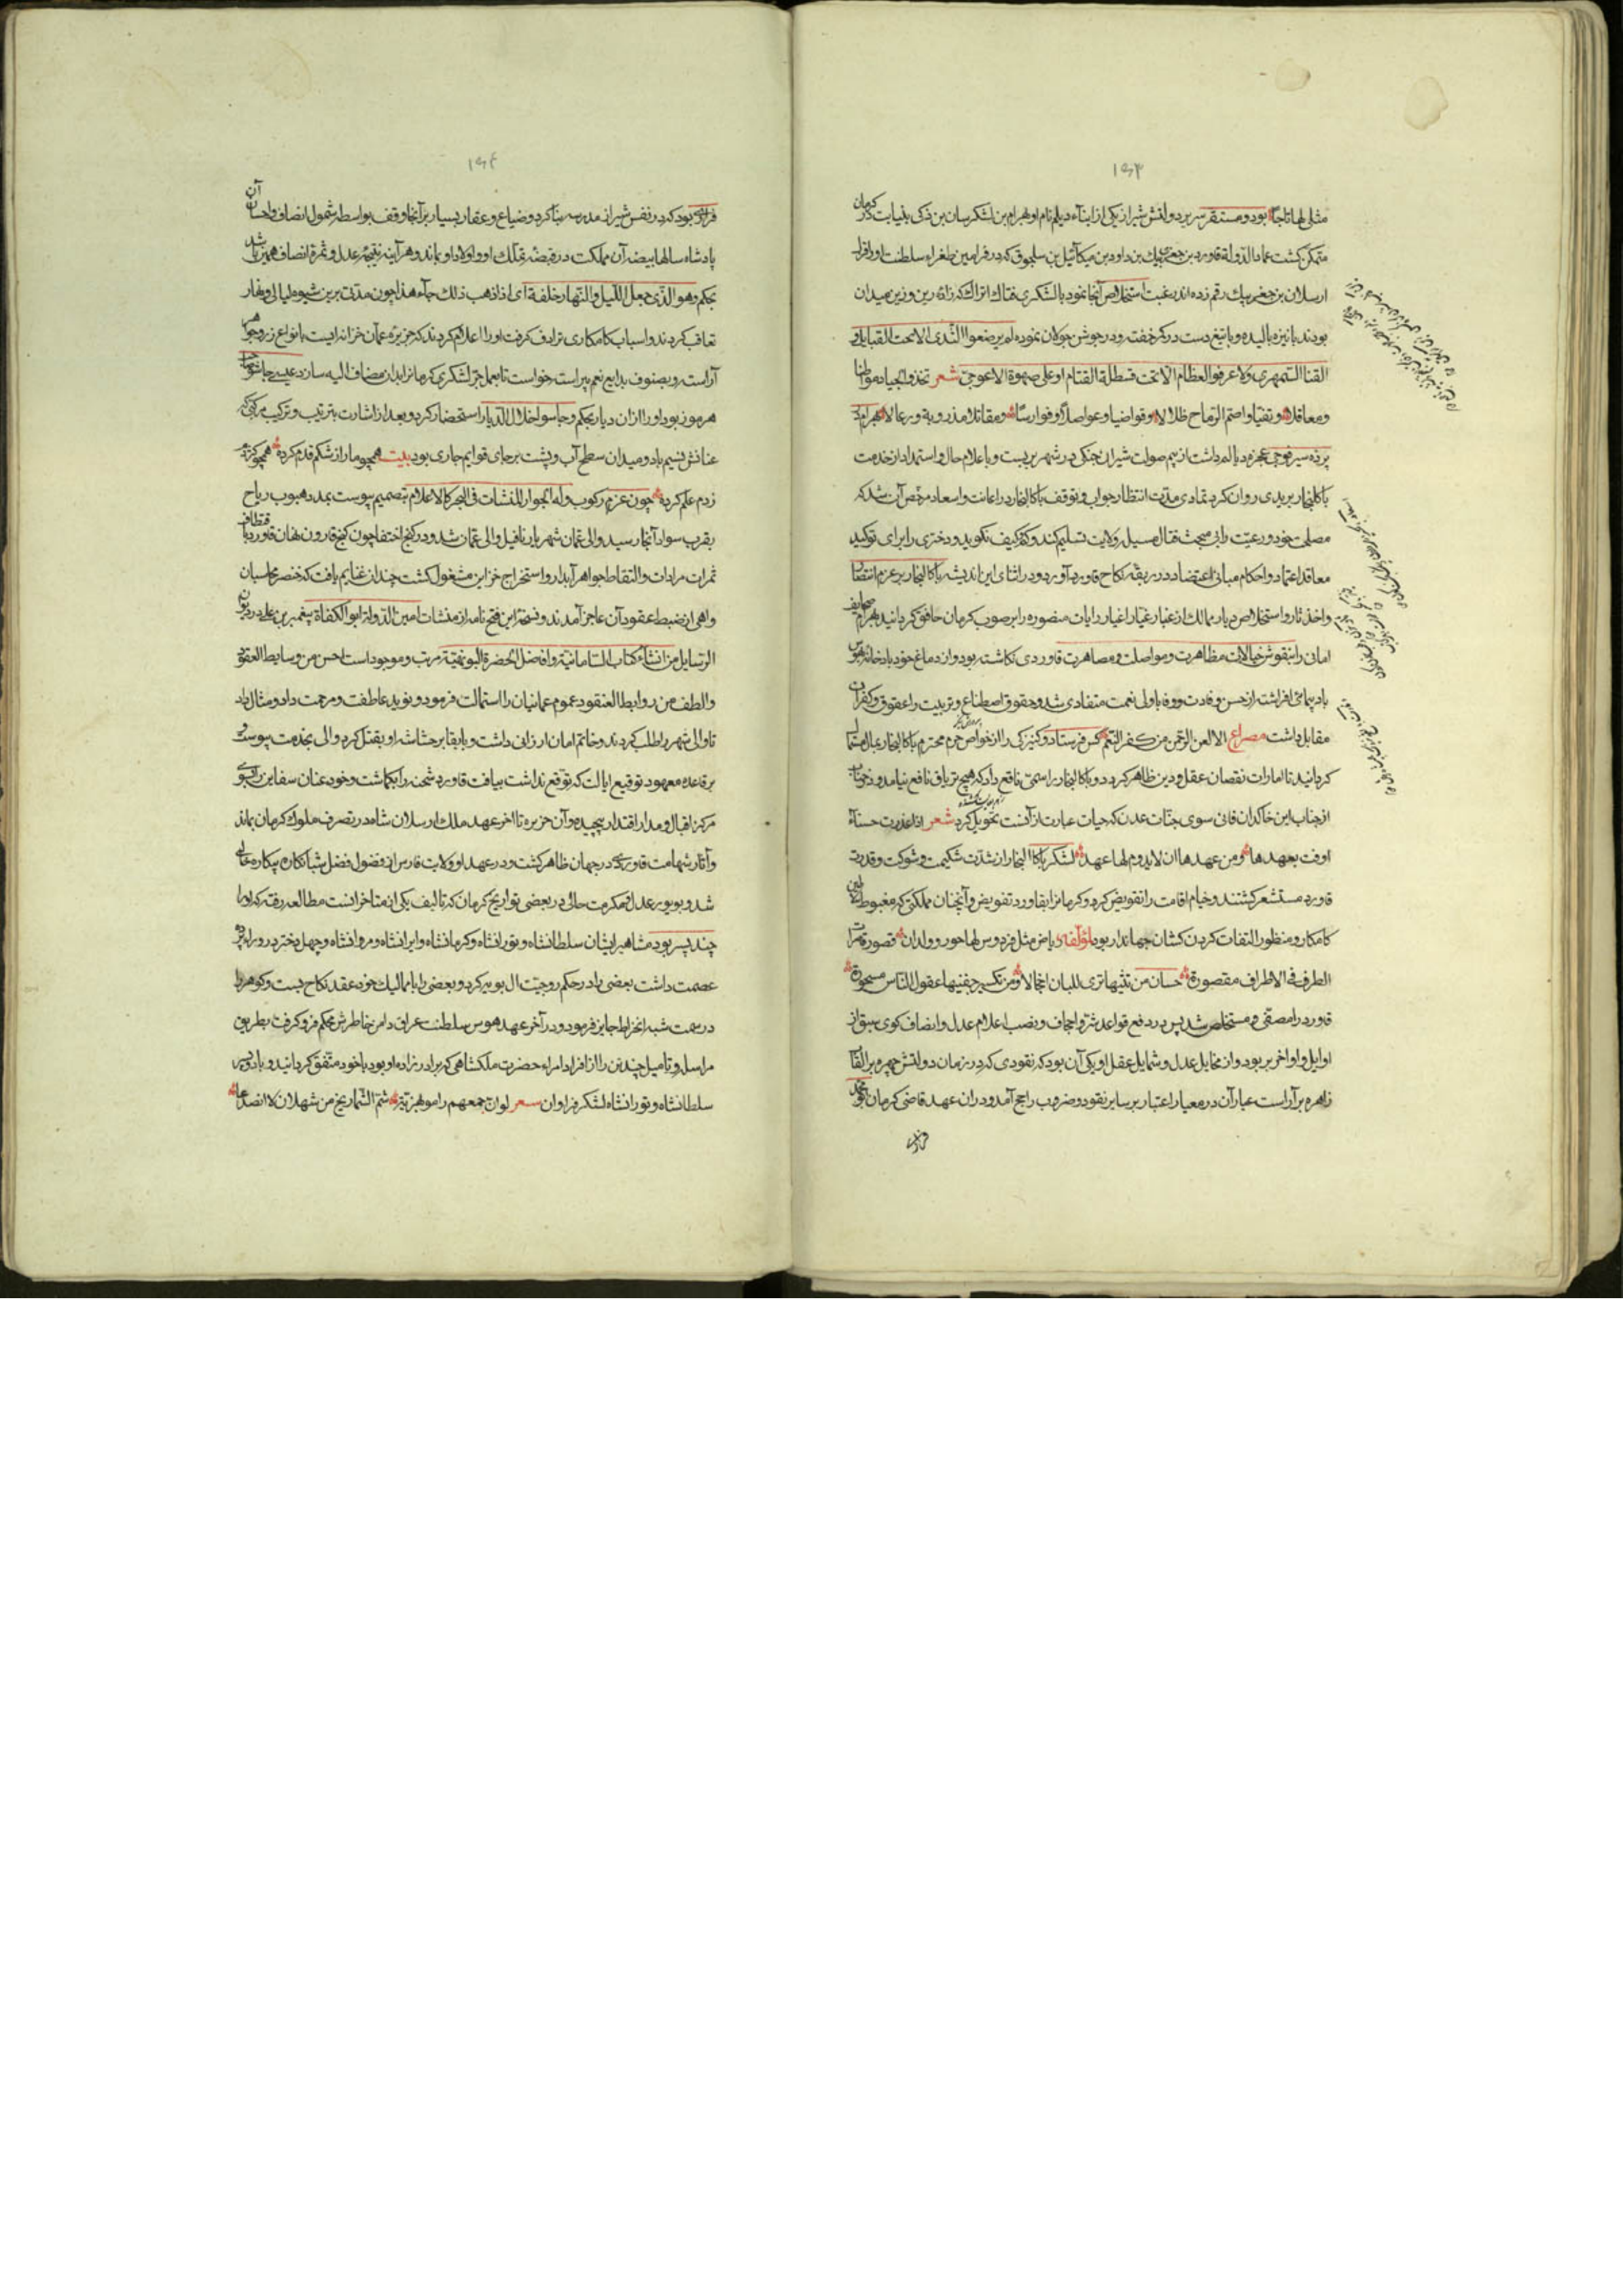 ۱۶۳
مثلی لها تاجا بود و مستقر سریر دولتش شیراز یکی از ابناء دیلم نام او بهرام بن لشکرسان بن ذکی بنیابت در کرمان
متمکن گشت عماد الدولة قاورد بن جغری بیك بن داود بن میکائیل بن سلجوق که در فرامین طغراء سلطنت او را قرا
ارسلان بن جغر بیك رقم زده اند رغبت استخلاص آنجا نمود با لشکری فتاك اتراك که زاده زین و زین میدان
بودند با نیزه بالیده و با تیغ دست در کمر خفته و در جوشن جولان نموده لم یرضعوا الثدی الا تحت القبابل و
القنا السمهری ولا عرفوا العظام الا تحت قسطلة القتام او علی صهوة الاعوجی شعر تخذوا الجیاد مواطنا
ومعاقلا وتفیاوا صم الرماح ظلالا وقواضبا وعواصلا وفوارسا ومقاتلا مذروبة ورعالا بهرام که
پرده سیر فوجی عجزه دیالم داشت از بیم صولت شیران جنکی در شهر بربست و باعلام حال و استمداد از خدمت
باکالنجار بریدی روان کرد تمادی مدت انتظار جواب و توقف باکالنجار در اعانت و اسعاد مرخص آن شد که
مصلحت خود و رعیت را بی مبحث قتال مسیل ولایت تسلیم کند و کم و کیف نگوید و دختری را برای توکید
معاقد اعتماد و احکام مبانی اعتضاد در ربقه نکاح قاورد آورد و در اثنای این اندیشه باکالنجار بر عزم انتقام
و اخذ ثار و استخلاص دیار ممالك از غبار غیار اغیار رایات منصوره را بر صوب کرمان خافق گردانید بهرام صحایف
امانی را بنقوش خیالات مظاهرت و مواصلت و مصاهرت قاوردی نکاشته بود و از دماغ خود بادخانه هوس
بادپیمائی افراشته از حسن وفادت و وفا با ولی نعمت متفادی شد و حقوق اصطناع و تربیت را عقوق و کفران
مقابل داشت مصراع الا لعن الرحمن من کفر النعم کس فرستاد و کنیزکی را از خواص حرم محترم باکالنجار بمال مستمال
گردانید تا امارات نقصان عقل و دین ظاهر کرد و باکالنجار را سمی ناقع داد که هیچ تریاق نافع نیامد و رخت جان
از جناب این خاکدان فانی سوی جنات عدن که حیات عبارت از آنست تحویل کرد شعر اذا غدرت حسناء
اوفت بعهدها ومن عهدها ان لا یدوم لها عهد لشکر باکالنجار از شدت شکیمت و شوکت و قدرت
قاورد مستشعر گشتند و خیام اقامت را تقویض کرد و کرمانرا بقاورد تفویض و آنچنان مملکتی که مغبوط سلاطین
کامکار و منظور التفات گردن کشان جهاندار بود لمؤلفه ریاض مثل فردوس لها حور وولدان قصور قاصرات
الطرف فی الاطراف مقصورة حسان من تثنیها تری للبان اخجالا ومن تکسیر جفنیها عقول الناس مسحورة
قاورد را مصفی و مستخلص شد پس در دفع قواعد شر و اجحاف و نصب اعلام عدل و انصاف کوی سبق از
اوایل و اواخر بر بود و از مخایل عدل و شمایل عقل او یکی آن بود که نقودی که در زمان دولتش چهره بر القاب
زاهره برآراست عیار آن در معیار اعتبار بر سایر نقود و ضروب راجح آمد و در آن عهد قاضی کرمان بو محمد
فزاری
۱۶۴
فزاری بود که در نفس شیراز مدرسه بنا کرد و ضیاع و عقار بسیار بر آنجا وقف بواسطه شمول انصاف و احسان آن
پادشاه سالها بیضه آن مملکت در قبضه تملك او و اولاد او بماند و هر آینه نتیجه عدل و ثمره انصاف همین باشد
بحکم وهو الذی جعل اللیل والنهار خلفة ای اذا ذهب ذلك جاء هذا چون مدتی برین شیوه لیالی و نهار
تعاقب کردند و اسباب کامکاری ترادف گرفت او را اعلام کردند که جزیره عمان خزانه ایست بانواع زر و جواهر
آراسته و بصنوف بدایع نعم پیراسته خواست تا بعمل جر لشکری کرمانرا بدان مضاف الیه سازد عیسی جاشو
هرموز بود او را ازان دیار بحکم وجاسوا خلال الدیار استحضار کرد و بعد از اشارت بترتیب و ترکیب مرکبی که
عنانش نسیم باد و میدان سطح آب و پشت بر جای قوایم جاری بود بیت همچو مار از شکم قدم کرده همچو کژدم
زدم علم کرده چون عزم رکوب وله الجوار المنشات فی البحر کالاعلام بتصمیم پیوست بمدد هبوب ریاح
بقرب سواد آنجا رسید والی عمان شهریار نافیل والی عمان شد و در کنج اختفا چون گنج قارون نهان قاورد باقتطاف
ثمرات مرادات و التقاط جواهر آبدار و استخراج خزاین مشغول گشت چندان غنایم یافت که خنصر محاسبان
واهی از ضبط عقود آن عاجز آمدند و نسخه این فتح نامه از منشات امین الدوله ابو الکفاة پیغمبر بن علی در دیوان
الرسایل من انشاء کتاب السامانیة و افاضل الحضرة البویهیة مرتب و موجود است احسن من وسایط العقود
والطف من روابط العنقود عموم عمانیان را استمالت فرمود و نوید عاطفت و مرحمت داد و مثال داد
تا والی شهر را طلب کردند و خاتم امان ارزانی داشت و بابقا بر حشاشه او بقتل کرد والی بخدمت پیوست و
بر قاعده معهود توقیع ایالت که توقع نداشت بیافت قاورد شحنه را بگماشت و خود عنان سفاین را سوی
مرکز اقبال و مدار اقتدار پیچیده و آن جزیره تا آخر عهد ملك ارسلان شاه در تصرف ملوك کرمان بماند
و آثار شهامت قاوردی در جهان ظاهر گشت و در عهد او ولایت فارس از فضول فضل شبانکاره بیکاره خالی
شد و بویور عدل و مکرمت حالی در بعضی تواریخ کرمان که تالیف یکی از متاخرانست مطالعه رفته که او را
چند پسر بود مشاهیر ایشان سلطانشاه و تورانشاه و کرمانشاه و ایرانشاه و مروانشاه و چهل دختر در وراء پرده
عصمت داشت بعضی را در حکم زوجیت آل بویه کرد و بعضی را با ممالیك خود عقد نکاح بست و گوهر را
در سمت شبه انخراط جایز فرمود و در آخر عهد هوس سلطنت عراق دامن خاطرش محکم فرو گرفت بطریق
مراسله و تامیل چند تن را از افراد امراء حضرت ملکشاهی که برادرزاده او بود با خود متفق گردانید و با دو پسر
سلطانشاه و تورانشاه لشکر فراوان شعر لو ان جمعهم راموا بهزته شم الشماریخ من شهلان لانصدعا